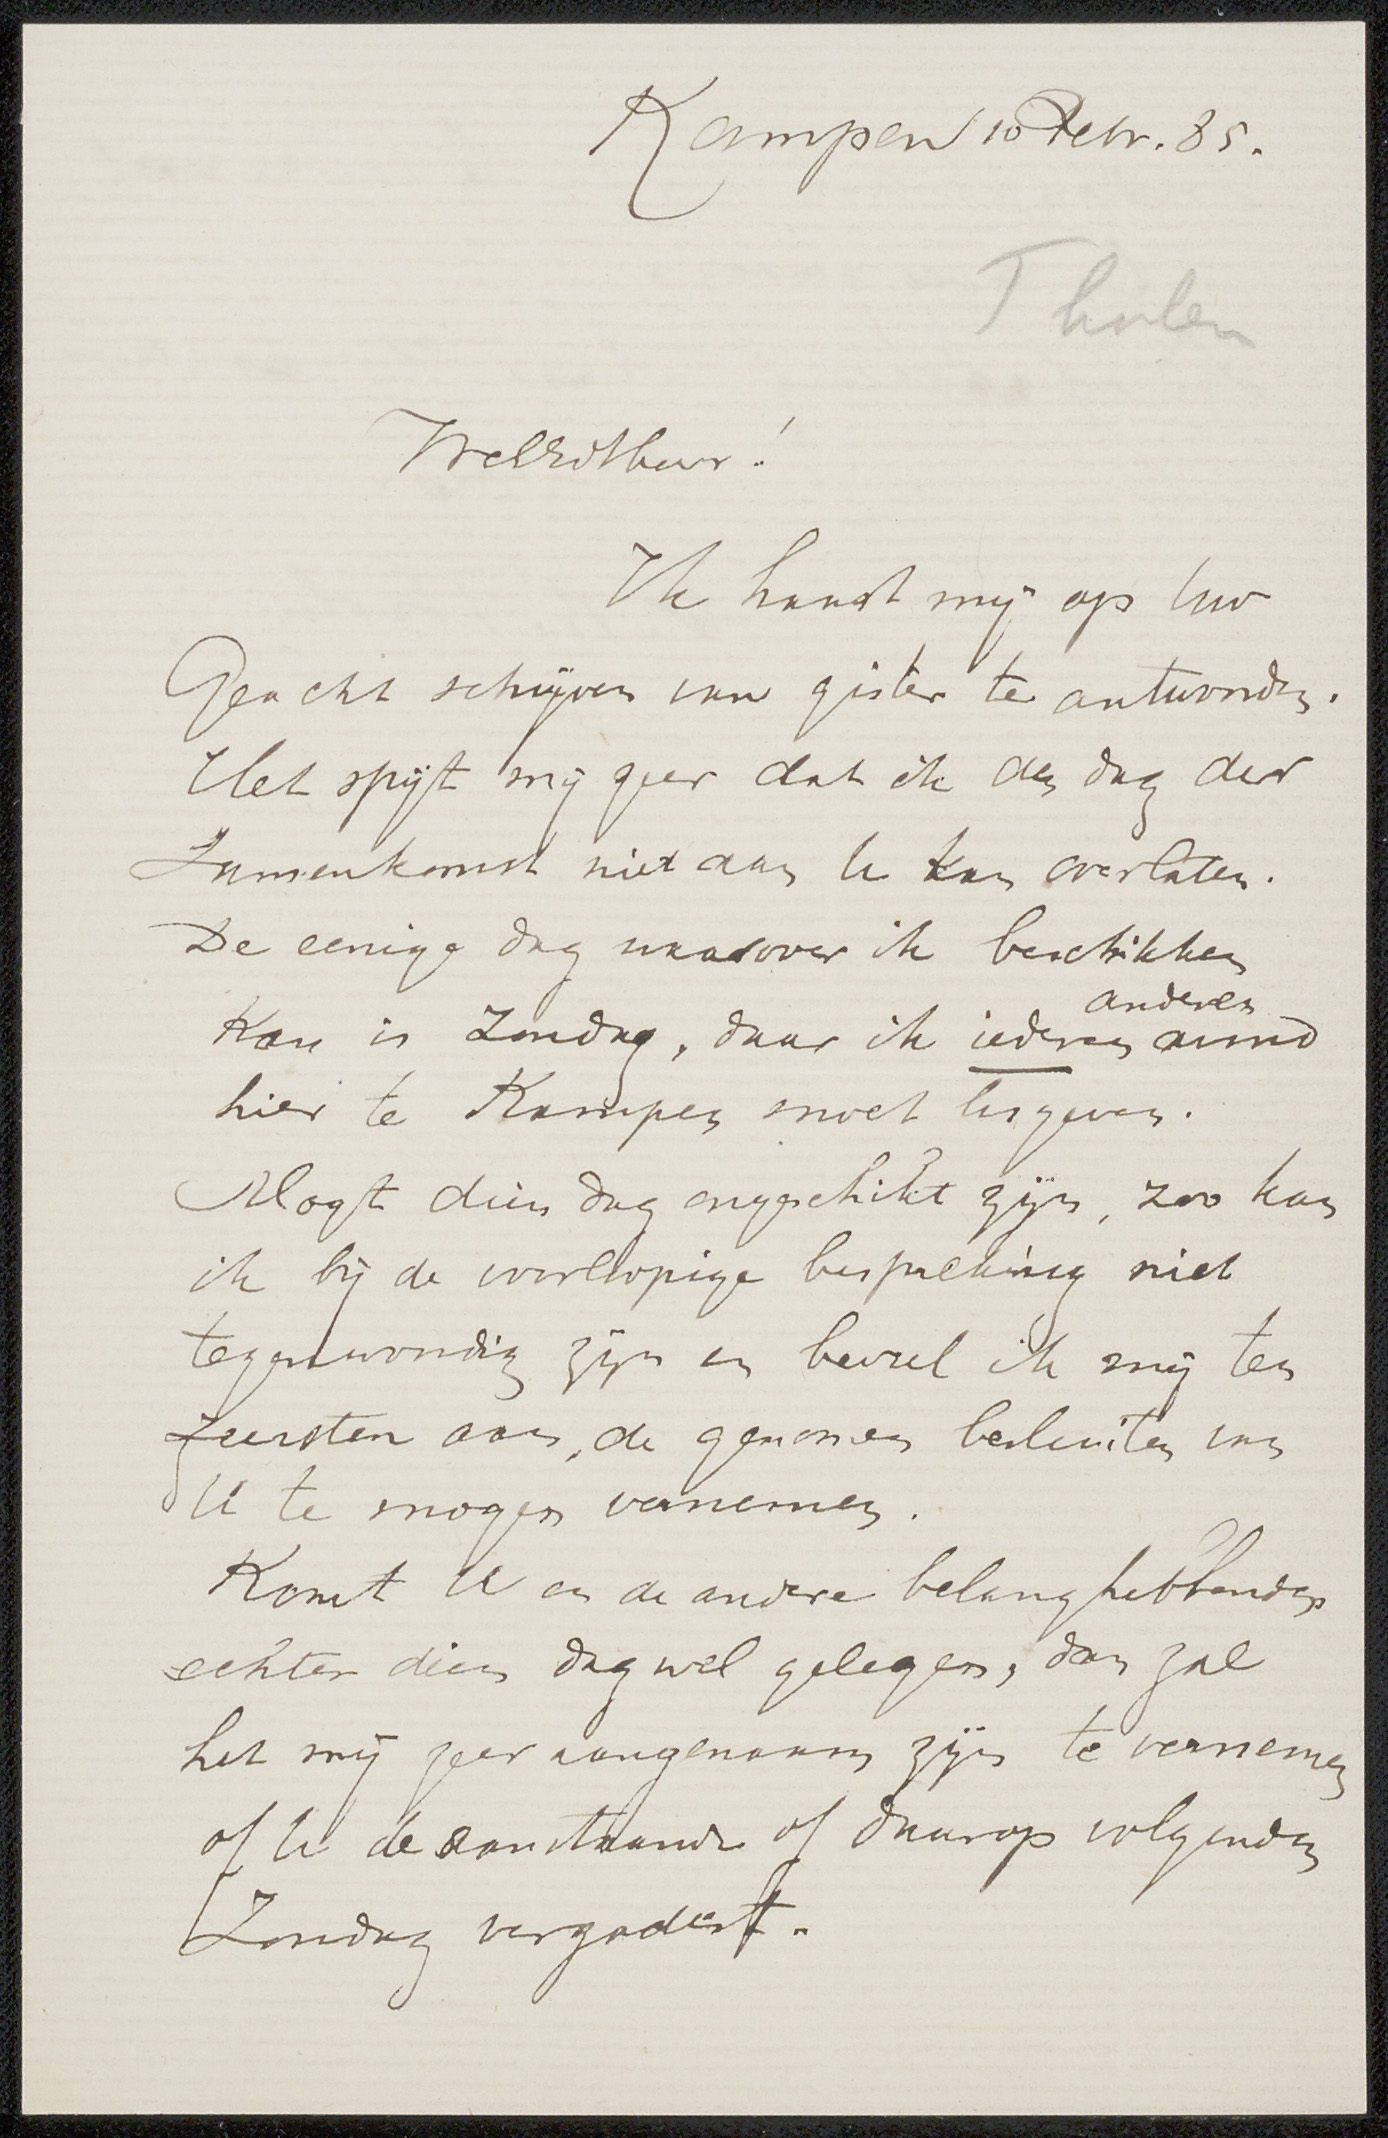 Kampen 10 Febr. 85.
Tholen
WelEdHeer!
Ik haast mij op Uw
Geacht schrijven van gister te antwoorden.
Het spijt mij zeer dat ik den dag der
Zamenkomst niet aan U kan overlaten.
De eenige dag waarover ik beschikken
anderen
kan is Zondag, daar ik iederen avond
hier te Kampen moet lesgeven.
Mogt dien dag ongeschikt zijn, zoo kan
ik bij de voorloopige bespreking niet
tegenwoordig zijn en beveel ik mij ten
zeersten aan, de genomen besluiten van
U te mogen vernemen.
Komt U en de andere belanghebbenden
echter dien dag wel gelegen, dan zal
het mij zeer aangenaam zijn te vernemen
of U de aanstaande of daarop volgenden
Zondag vergadert.